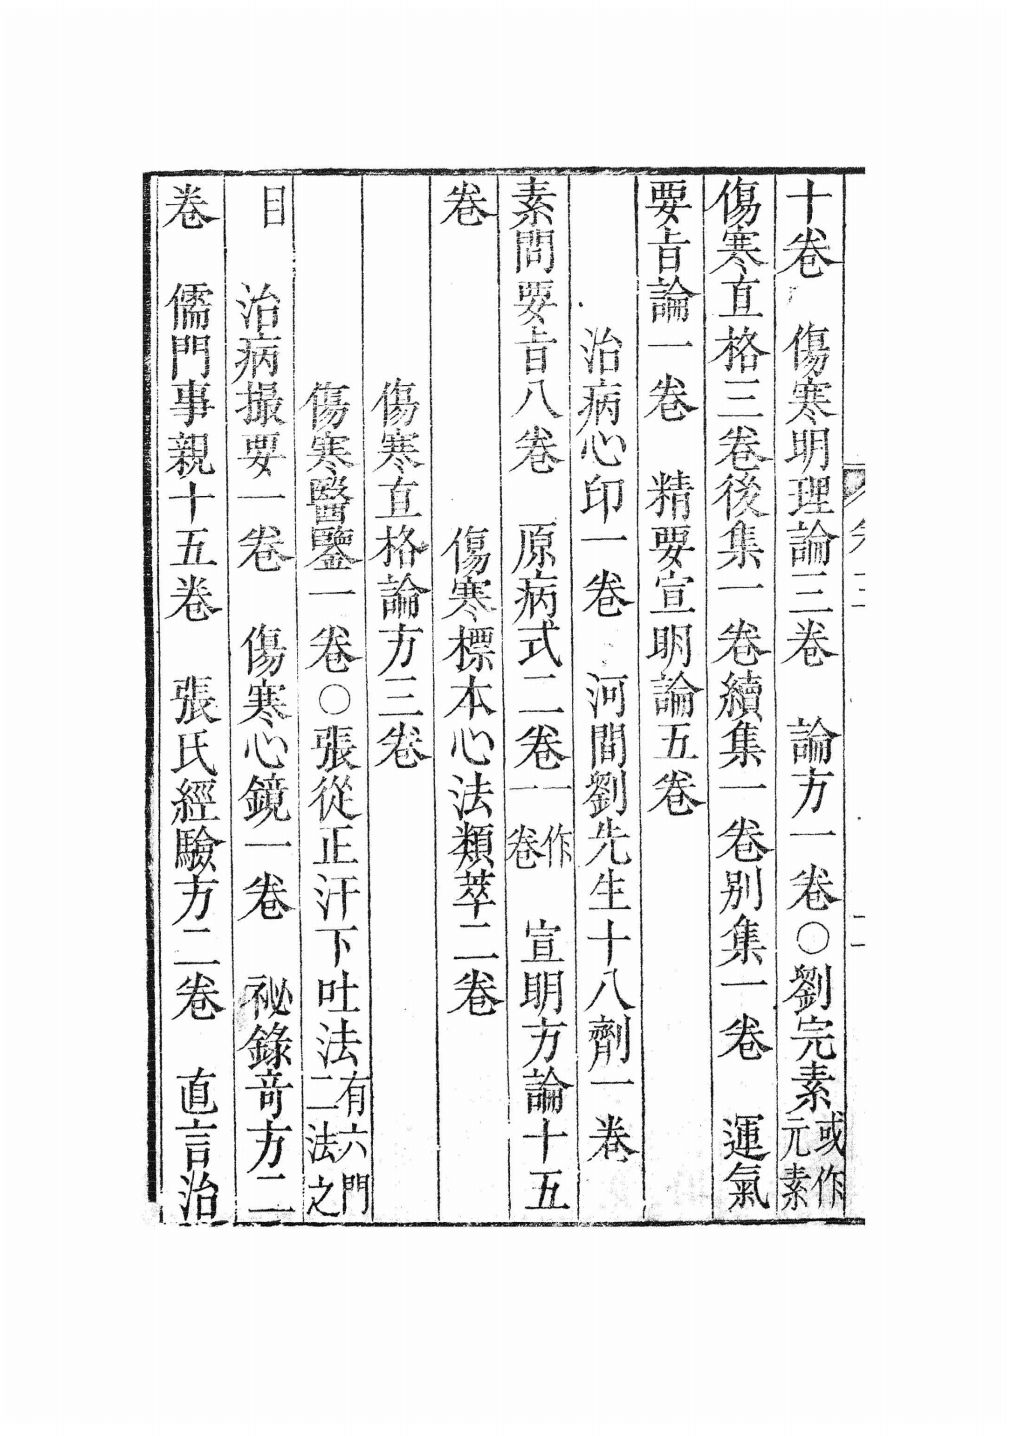 十卷　傷寒明理論三卷　論方一卷○劉完素或作元素
傷寒直格三卷後集一卷續集一卷别集一卷　運氣
要旨論一卷　精要宣明論五卷
治病心印一卷　河間劉先生十八劑一卷
素問要旨八卷　原病式二卷一作一卷　宣明方論十五
卷　傷寒標本心法類萃二卷
傷寒直格論方三卷
傷寒醫鑒一卷○張從正汗下吐法有六門二法之
目　治病撮要一卷　傷寒心鏡一卷　祕錄竒方二
卷　儒門事親十五卷　張氏經驗方二卷　直言治